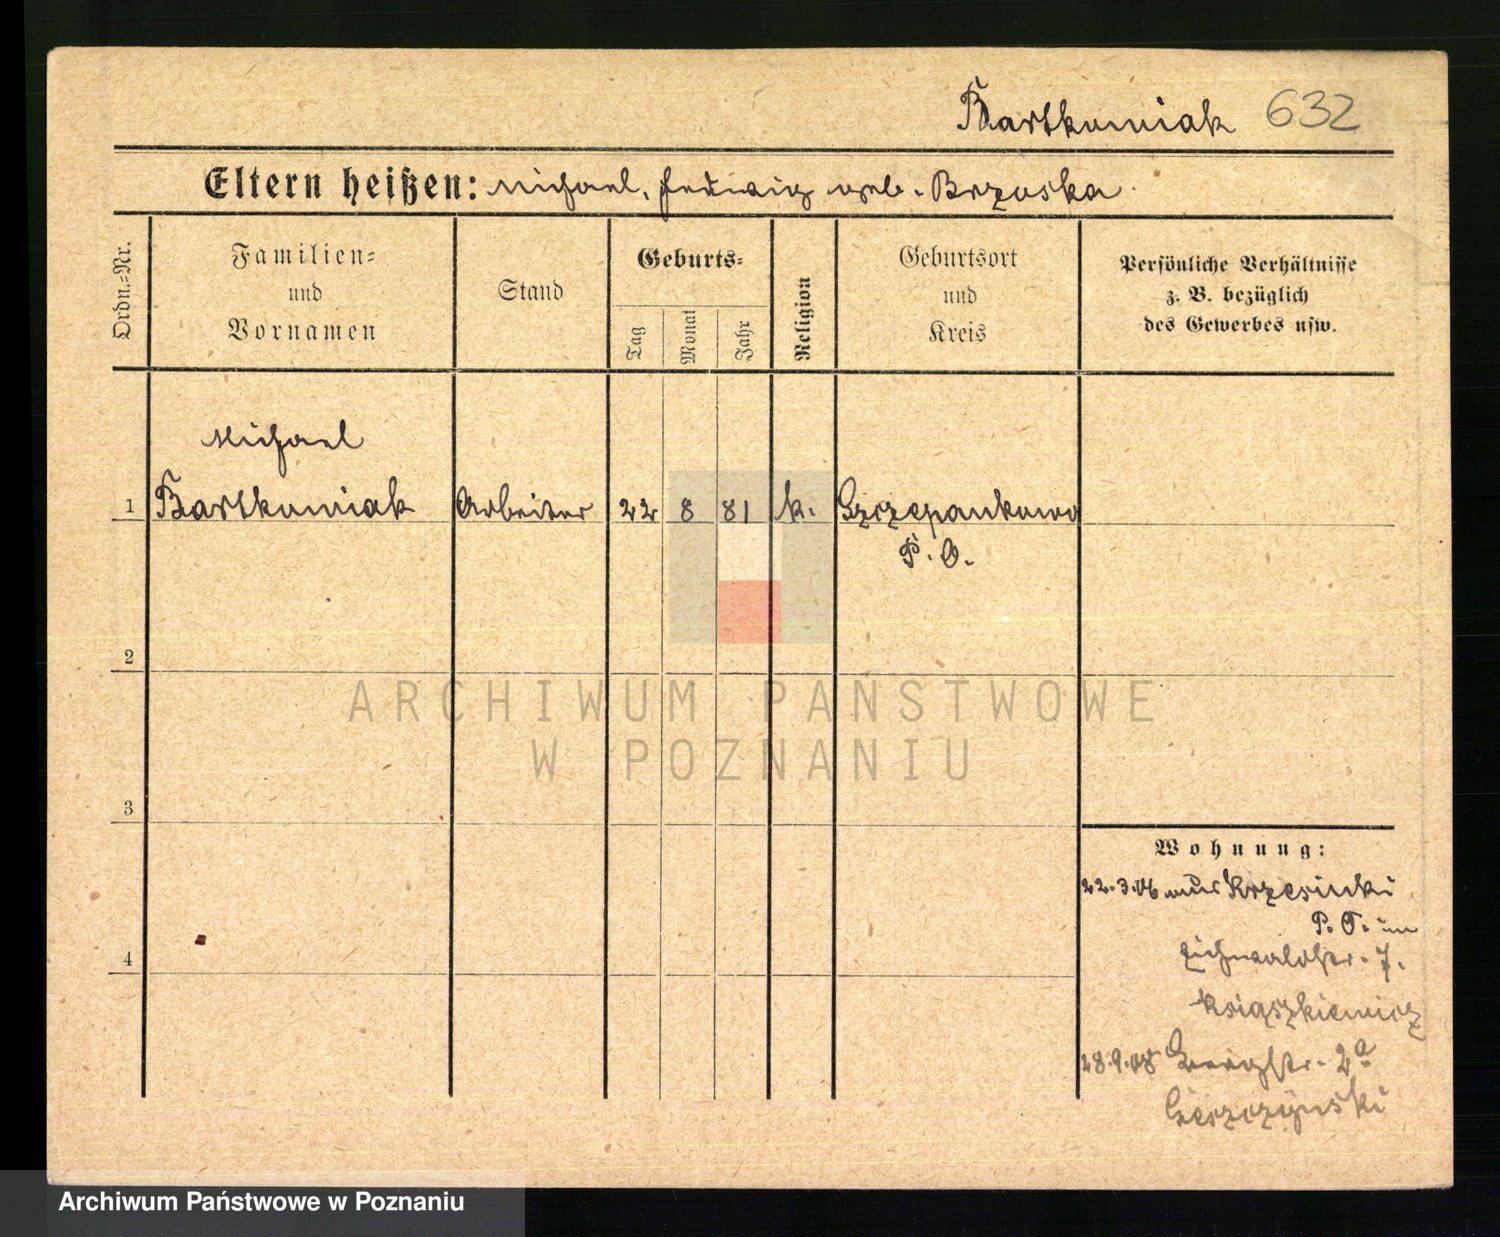 Bartkowiak 632
Eltern heißen: Michael, Hedwig geb. Brzoska
Ordn.=Nr.
Familien=
und
Vornamen
Stand
Geburts=
Tag
Monat
Jahr
Religion
Geburtsort
und
Kreis
Persönliche Verhältnisse
z. B. bezüglich
des Gewerbes usw.
Michael
1 Bartkowiak Arbeiter 22 8 81 k. Szczepankowo
P. O.
2
ARCHIWUM PAŃSTWOWE
W POZNANIU
3
Wohnung:
22.3.06 aus Krzesinki
P. O. in
Eichwaldstr. 7.
Książkiewicz
28.9.08 2a
4
Archiwum Państwowe w Poznaniu